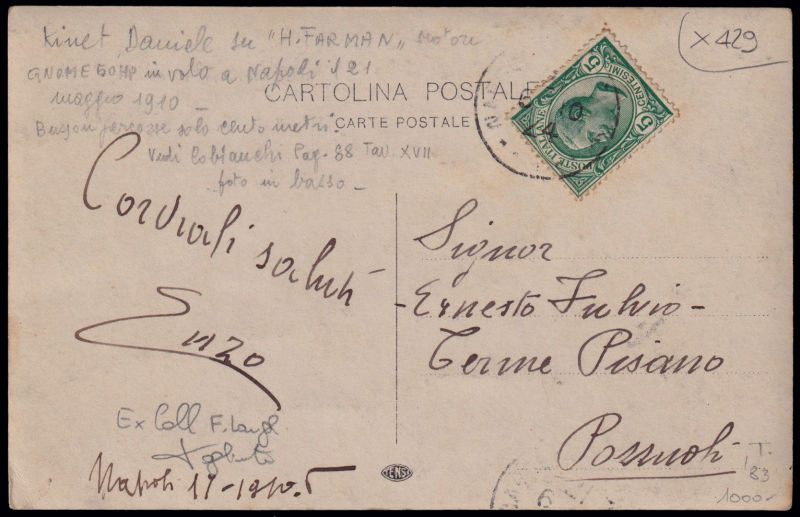 Kinet Daniele su "H. FARMAN" motore
GNOME 50HP in volo a Napoli 1 21
maggio 1910 -
percorse solo cento metri
Vedi Cobianchi Pag. 88 Tav. XVII
foto in basso -
× 429
CARTOLINA POSTALE
CARTE POSTALE
POSTE ITALIANE
CENTESIMI
C5
Cordiali saluti
Enzo
Signor
- Ernesto Fulvio -
Terme Pisano
Pozzuoli
Ex Coll
Napoli 11-1910.5
TENSI
T.
183
1000-